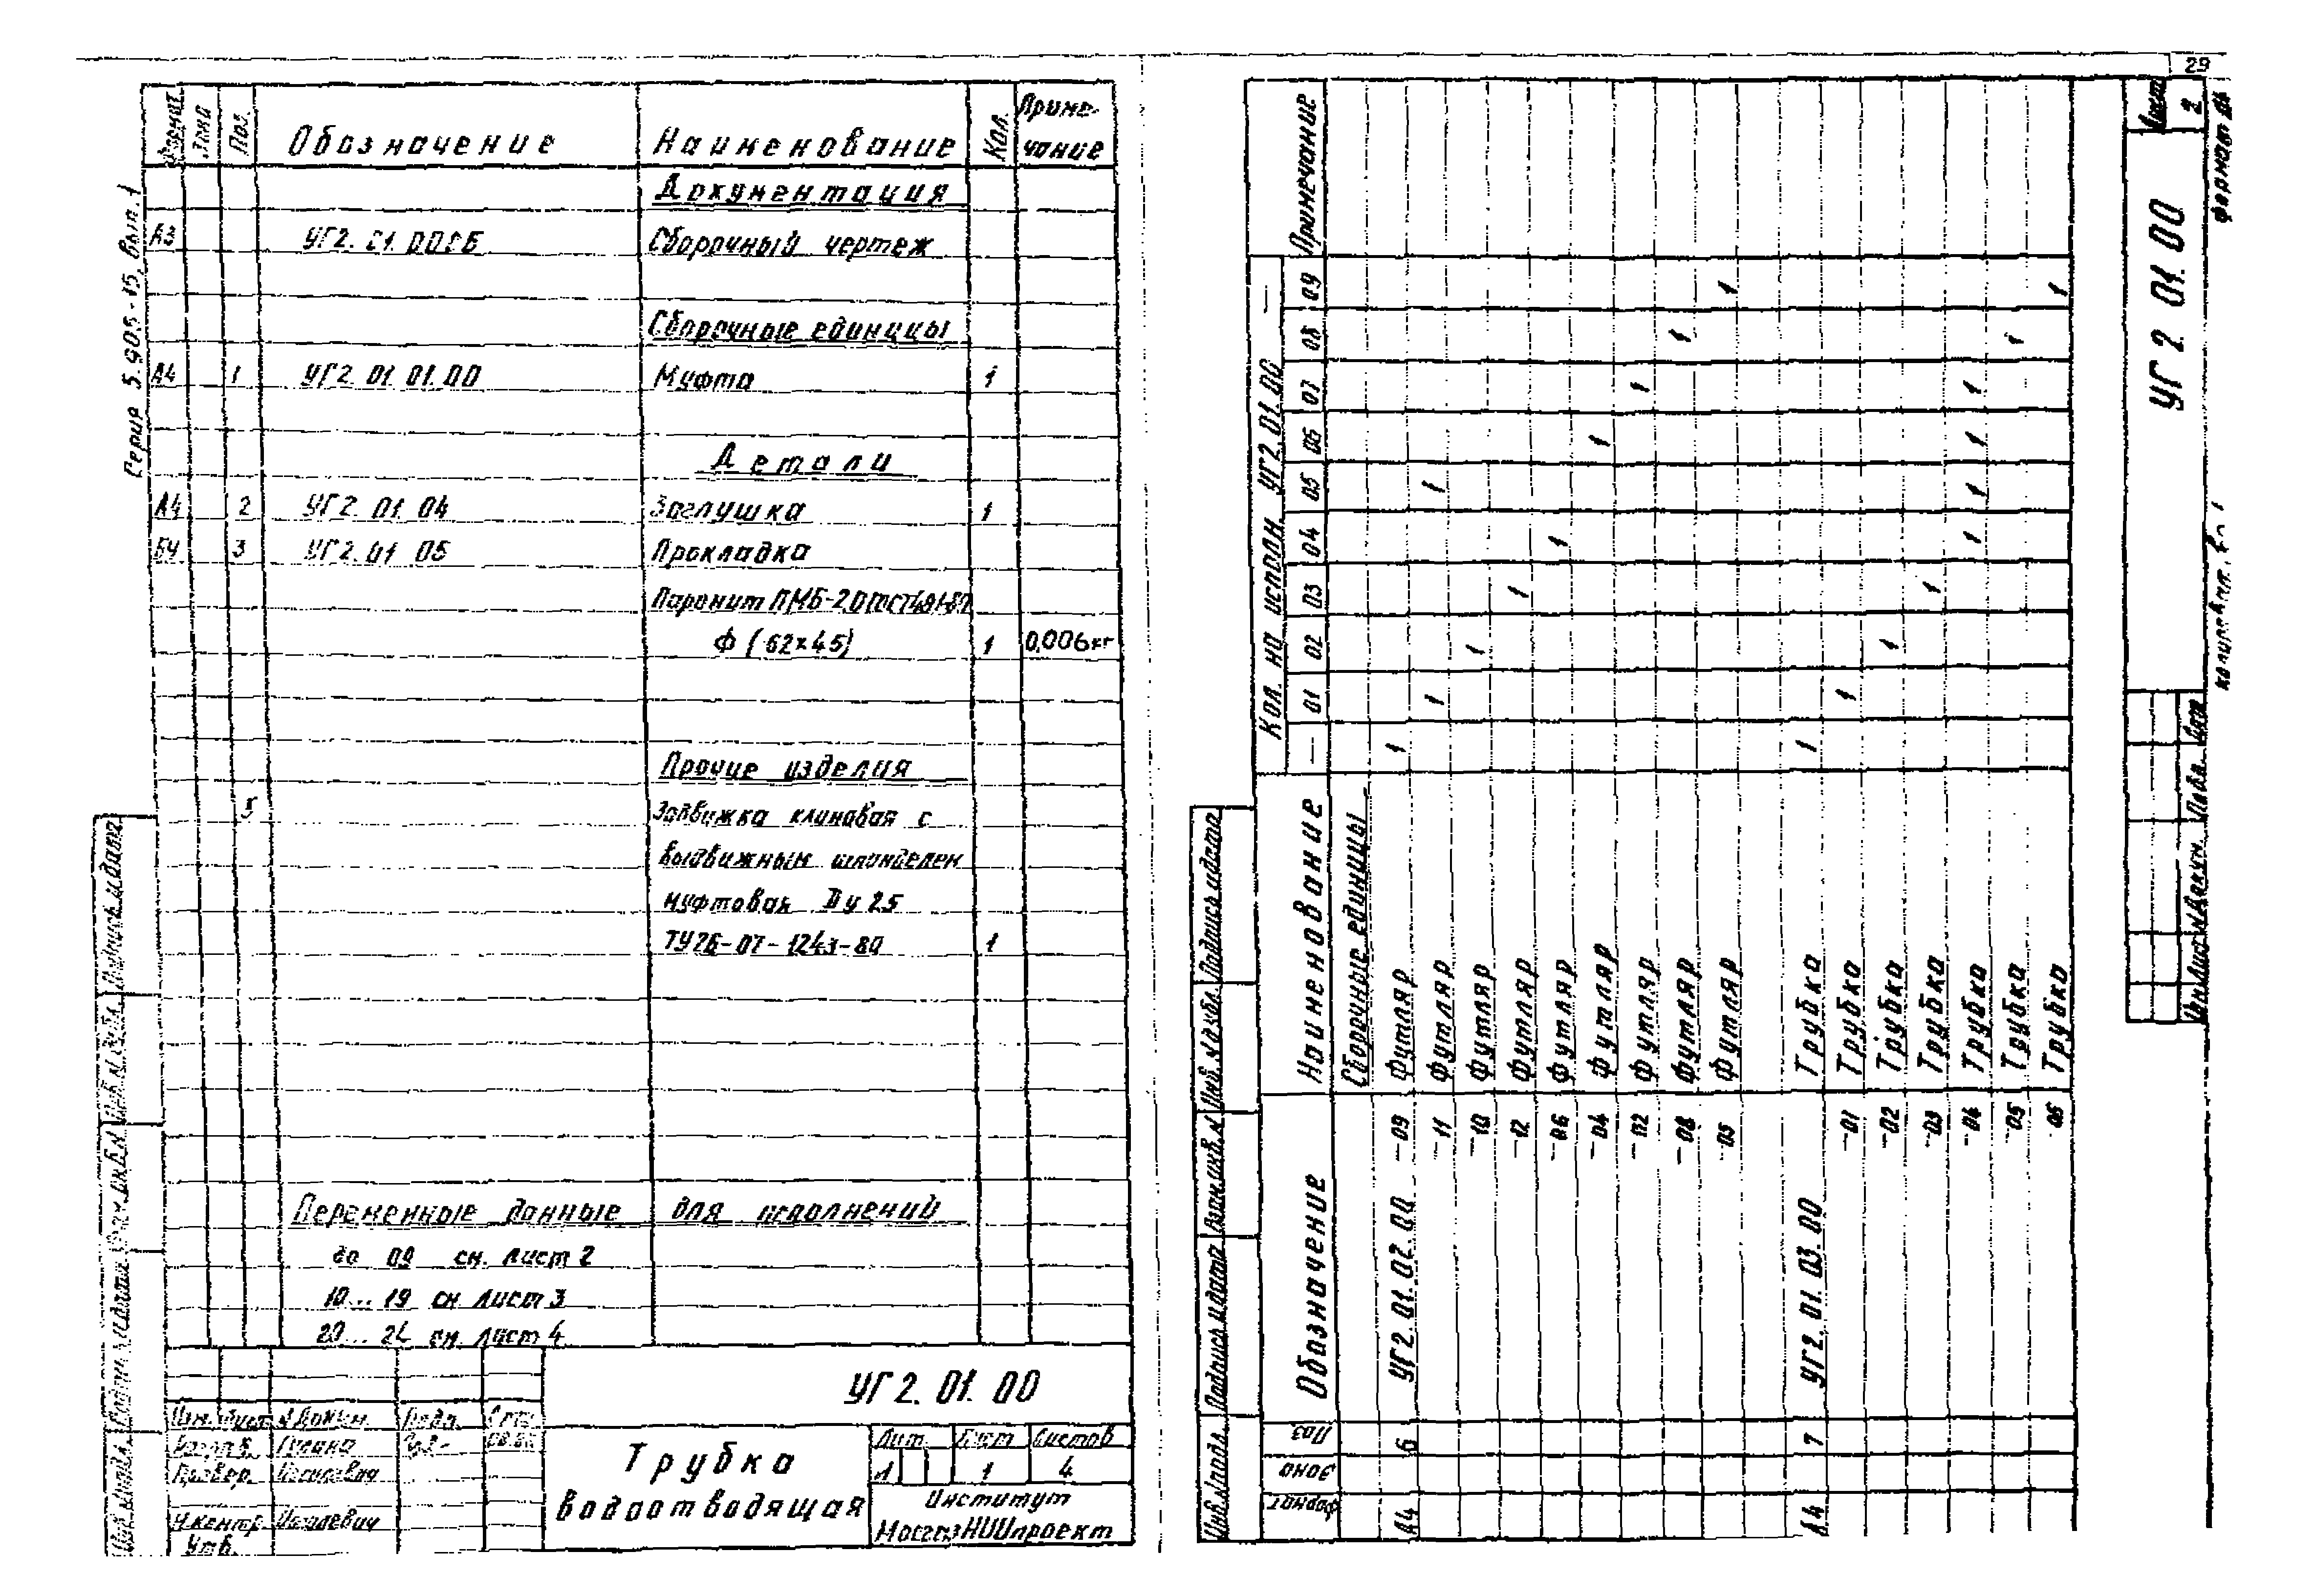 29
Серия 5.905-15, вып. 1
Формат Зона Поз. Обозначение Наименование Кол. Примечание
Документация
А3 УГ2. 01. 00СБ Сборочный чертеж
Сборочные единицы
А4 1 УГ2. 01. 01. 00 Муфта 1
Детали
А4 2 УГ2. 01. 04 Заглушка 1
БЧ 3 УГ2. 01. 05 Прокладка
Паронит ПМБ-2,0 ГОСТ481-80
Ф (62×45) 1 0,006кг
Прочие изделия
5 Задвижка клиновая с
выдвижным шпинделем
муфтовая Dу 25
ТУ26-07-1243-80 1
Переменные данные для исполнений
до 09 см. лист 2
10...19 см лист 3
20...24 см. лист 4
УГ2. 01. 00
Изм. Лист № Докум. Подп.
Провер.
Н.контр. 
Утв.
Трубка
водоотводящая
Лит. Лист Листов
1 4
Институт
МосгазНИИпроект
Инв.№ подл. Подпись и дата Взам.инв.№ Инв.№ дубл. Подпись и дата
Формат Зона Поз. Обозначение Наименование Кол. на исполн. УГ2. 01. 00 — Примечание
— 01 02 03 04 05 06 07 08 09
Сборочные единицы
А4 6 УГ2. 01. 02. 00 -09 Футляр 1
-11 Футляр 1 1
-10 Футляр 1
-12 Футляр 1
-06 Футляр 1
-04 Футляр 1
-02 Футляр 1
-08 Футляр 1
-05 Футляр 1
А4 7 УГ2. 01. 03. 00 Трубка 1
-01 Трубка 1
-02 Трубка 1
-03 Трубка 1
-04 Трубка 1 1 1 1
-05 Трубка 1
-06 Трубка 1
Инв.№ подл. Подпись и дата Взам.инв.№ Инв.№ дубл. Подпись и дата
Изм. Лист № докум. Подп. Дата
УГ 2. 01. 00
Лист
2
Формат